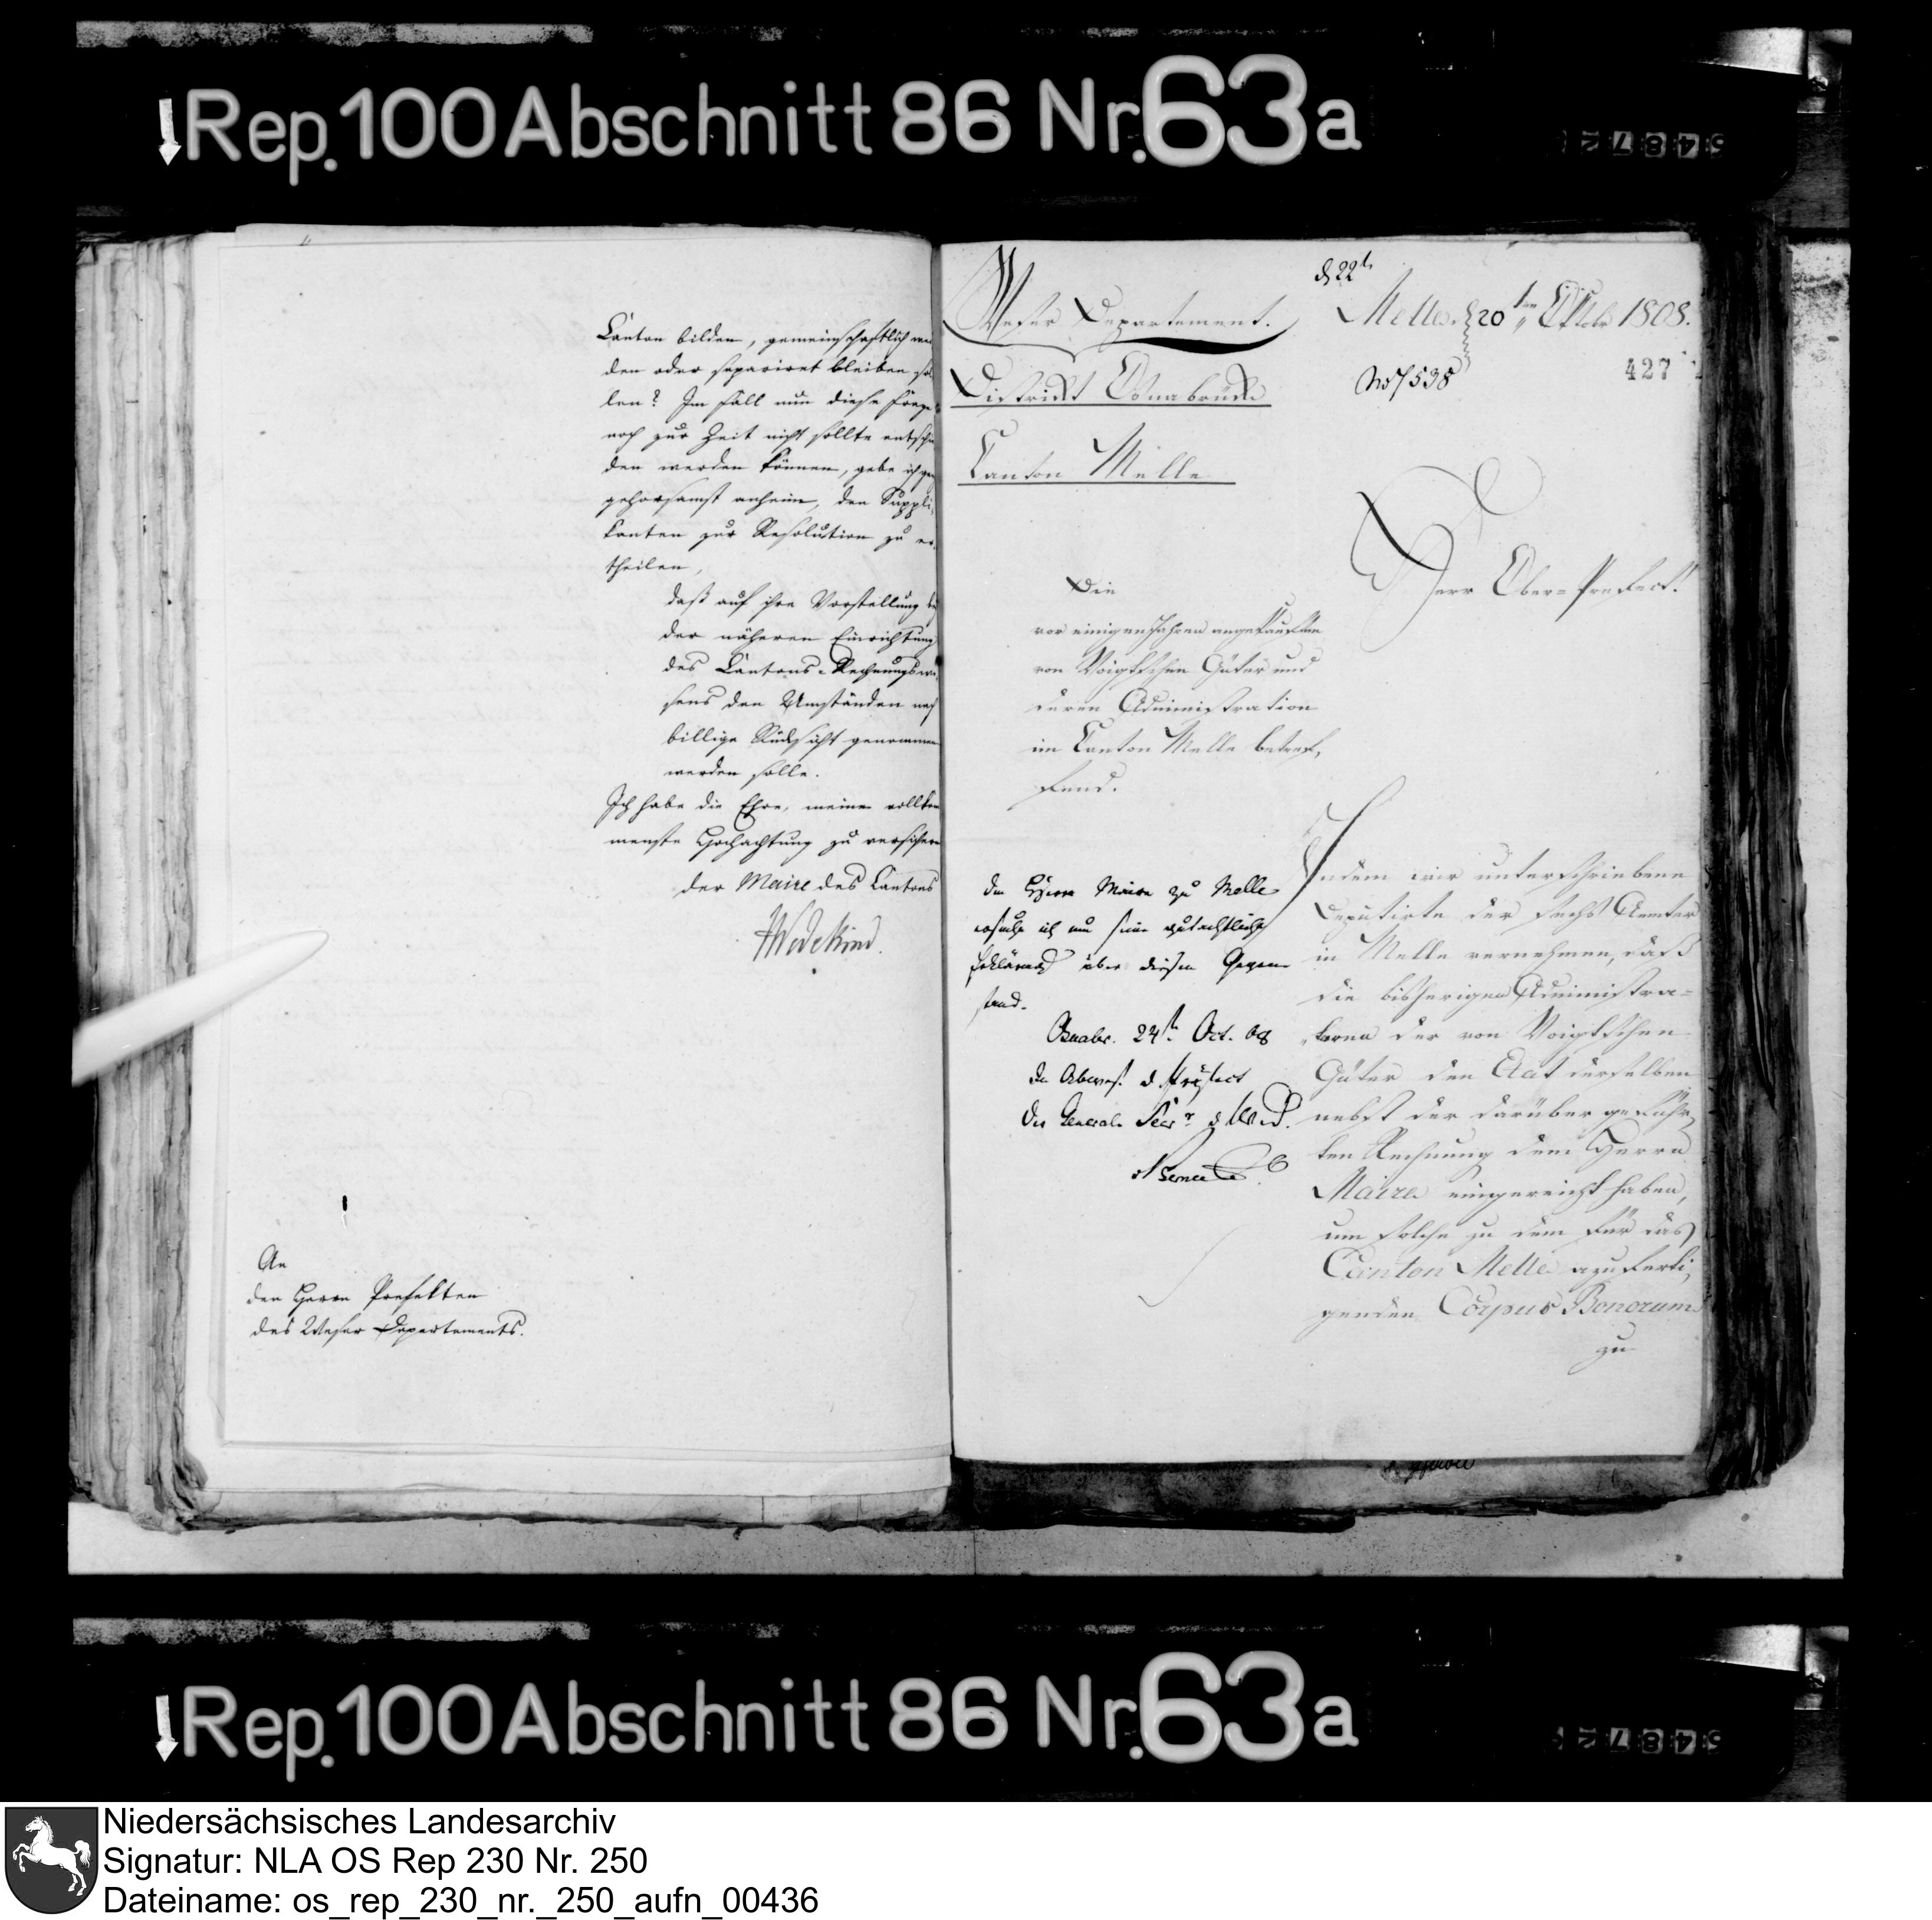 Rep. 100 Abschnitt 86 Nr. 63a
Canton bilden, gemeinschaftlich wer
den oder separiret bleiben sol
len? Im Fall nun diese Frage
noch zur Zeit nicht sollte entschie
den werden können, gebe ich ganz
gehorsamst anheim, den Suppli,
kanten zur Resolution zu er,
theilen,
daß auf ihre Vorstellung bei
der näheren Einrichtung
des Cantons-Rechnungswe,
sens den Umständen nach
billige Rücksicht genommen
werden solle.
Ich habe die Ehre, meine vollkom
menste Hochachtung zu versichern
der Maire des Cantons
Wedekind.
An
den Herrn Prefekten
des Weser Departements.
Weser Departement.
District Osnabrück
Canton Melle
22t
Melle d 20ten Octbr 1808.
No 7538
427
Herr Ober-Prefect!
Die
vor einigen Jahren angekauften
von Voigtschen Güter und
deren Administration
im Canton Melle betref,
fend.
Den Herrn Maire zu Melle
ersuche ich um seine gutachtliche
Erklärung über diesen Gegen
stand.
Osnabr. 24t. Oct. 08
Der General Secr
Indem wir unterschriebene
Deputirte der sechs Aemter
in Melle vernehmen, daß
die bisherigen Administra-
toren der von Voigtschen
Güter den Etat derselben
nebst der darüber geführ,
ten Rechnung dem Herrn
Maire eingereicht haben,
um solche zu dem für das
Canton Melle
genden Corpus Bonorum
zu
Rep. 100 Abschnitt 86 Nr. 63a
Niedersächsisches Landesarchiv
Signatur: NLA OS Rep 230 Nr. 250
Dateiname: os_rep_230_nr._250_aufn_00436